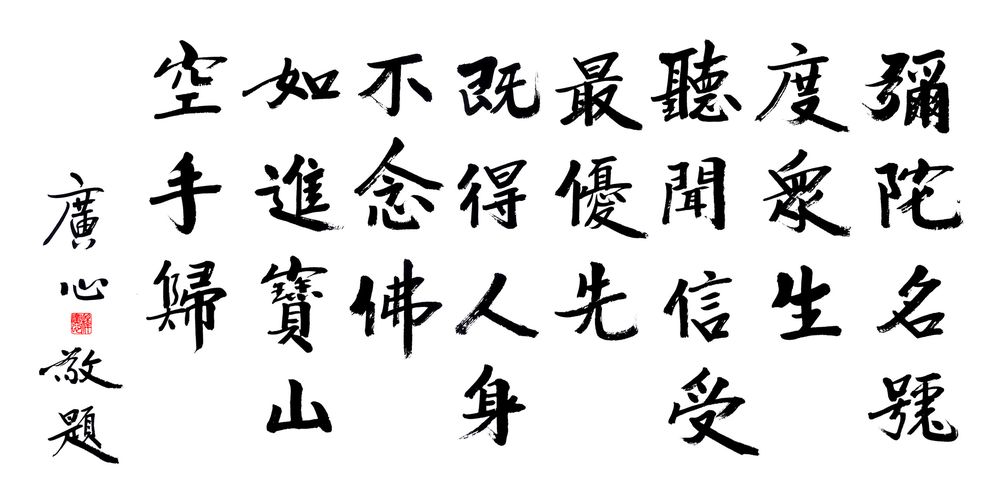 彌陀名號
度眾生
聽聞信受
最優先
既得人身
不念佛
如進寶山
空手歸
廣心敬題